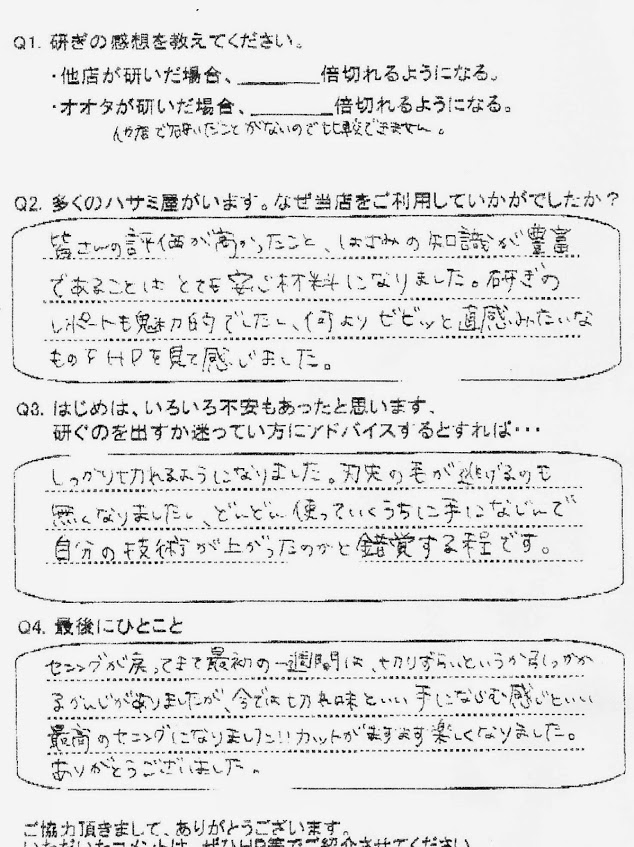 Q1. 研ぎの感想を教えてください。
・他店が研いだ場合、______倍切れるようになる。
・オオタが研いだ場合、______倍切れるようになる。
他店で研いだことがないので比較できません。
Q2. 多くのハサミ屋がいます。なぜ当店をご利用していかがでしたか?
皆さんの評価が高かったこと、はさみの知識が豊富
であることはとても安心材料になりました。研ぎの
レポートも魅力的でしたし、何よりビビッと直感みたいな
ものをHPを見て感じました。
Q3. はじめは、いろいろ不安もあったと思います、
研ぐのを出すか迷ってい方にアドバイスするとすれば・・・
しっかり切れるようになりました。刃先の毛が逃げるのも
無くなりましたし、どんどん使っていくうちに手になじんで
自分の技術が上がったのかと錯覚する程です。
Q4. 最後にひとこと
セニングが戻ってきて最初の一週間は、切りずらいというか引っかか
るかんじがありましたが、今では切れ味といい手になじむ感じといい
最高のセニングになりました!!カットがますます楽しくなりました。
ありがとうございました。
ご協力頂きまして、ありがとうございます。
いただいたコメントは、ぜひHP等でご紹介させてください